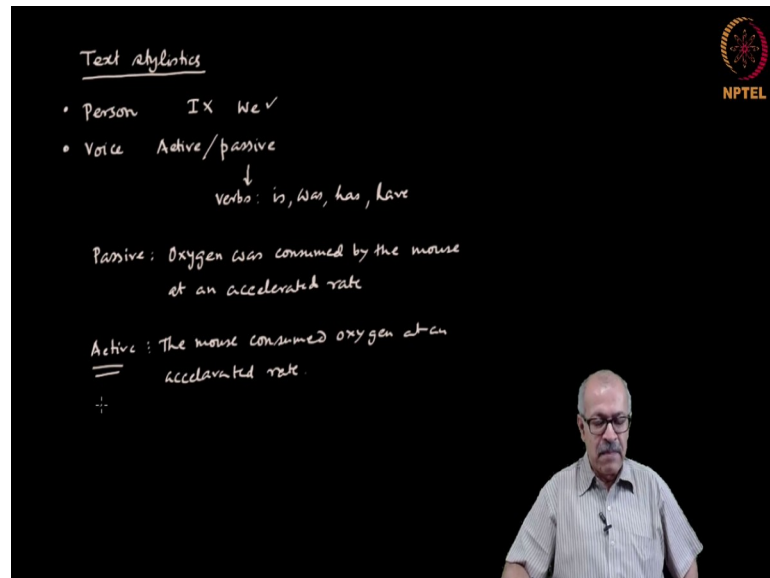 Text stylistics
• Person I X We ✓
• Voice Active/passive
↓
verbs: is, was, has, have
Passive: Oxygen was consumed by the mouse
at an accelerated rate
Active: The mouse consumed oxygen at an
accelarated rate.
NPTEL